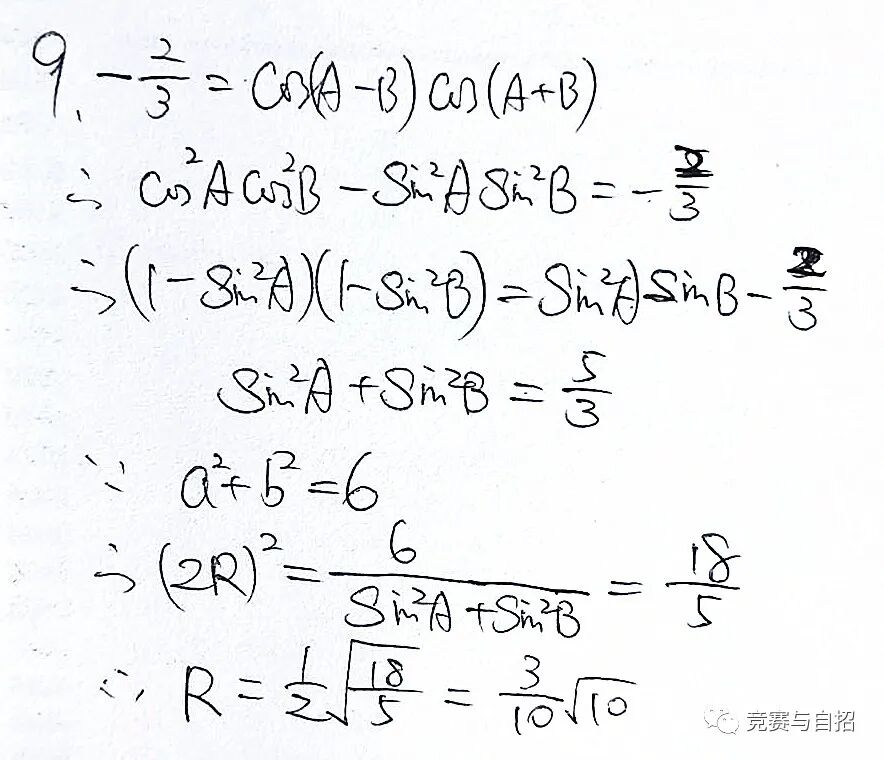 9. -2/3 = cos(A-B)cos(A+B)
∴ cos²Acos²B - Sin²ASin²B = -2/3
∴ (1-Sin²A)(1-Sin²B) = Sin²ASinB - 2/3
Sin²A + Sin²B = 5/3
∵ a²+b²=6
∴ (2R)² = 6/(Sin²A+Sin²B) = 18/5
∴ R = 1/2√(18/5) = 3/10√10
竞赛与自招